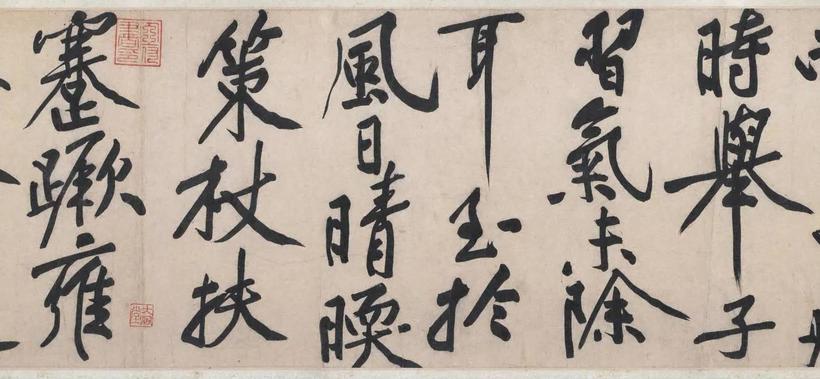 時舉子
習氣未除
耳至於
風日晴暖
策杖扶
蹇蹶雍